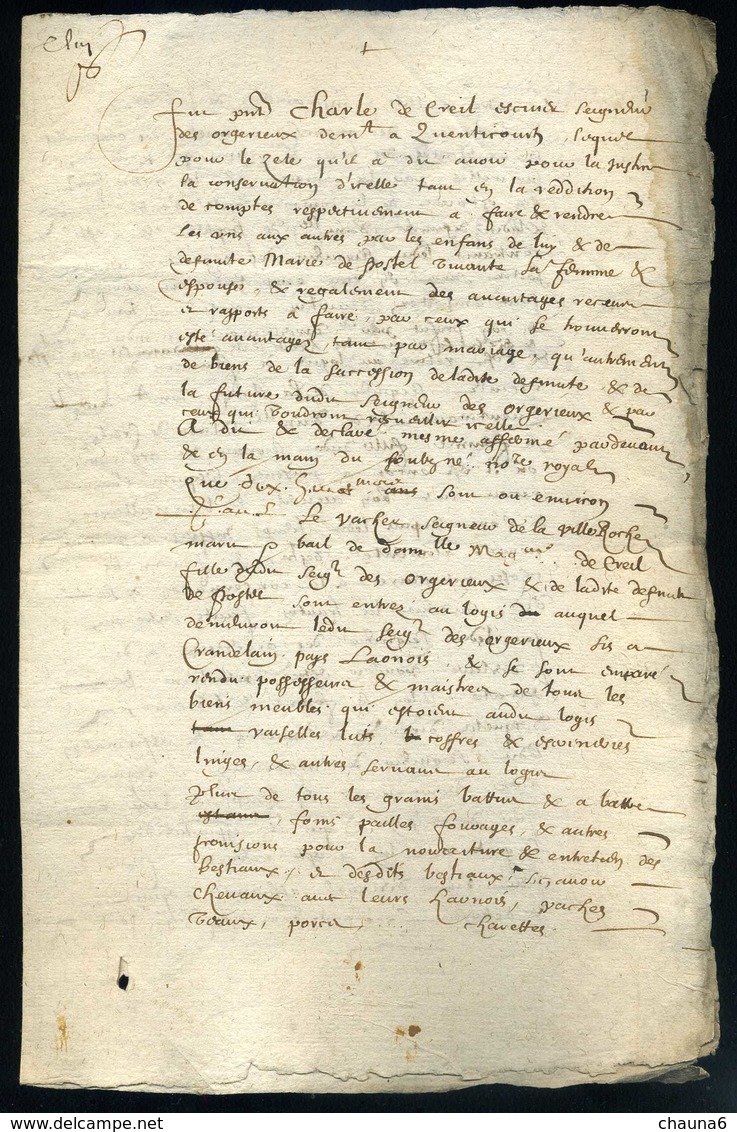 +
Fut pnt Charle de Creil escuier Seigneur
des orgerieux demt a Quenticourt, lequel
pour le zele qu'il a dit avoir pour la Justice
la conservation d'icelle tant en la reddition
de comptes respectivement a faire & rendre
les uns aux autres par les enfans de luy & de
deffunte Marie de Postel vivante sa femme &
espouse, & regalement des avantages receus
et rapports a faire, par ceux qui se trouverront
esté avantagez, tant par mariage, qu'autrement
de biens de la succession de ladite deffunte & de
la future dudit Seigneur des orgerieux & par
ceux qui voudront recueillir icelle
A dit & declaré, mesme affermé pardevant
& en la main du soubzné note royal
que deux mois ans sont ou environ
Le vacher Seigneur de la ville Roche
mari & bail de damlle de Creil
fille dudit Seigr des orgerieux & de ladite deffunte
de Postel sont entrez au logis du auquel
demeuroit ledit Seigr des orgerieux sis a
Crandelain pays Laonois, & se sont emparé
rendu possesseurs & maistres de tous les
biens meubles qui estoient audit logis
tant vaiselles licts, coffres & escuineries
linges, & autres servant au logis
Plus de tous les grains battus & a battre
estant, foins pailles fourages, & autres
provisions pour la nourriture & entretien des
Bestiaux, et desdits bestiaux, sçavoir
Chevaux avec leurs harnois, vaches
veaux, porcs, charettes
chauna6